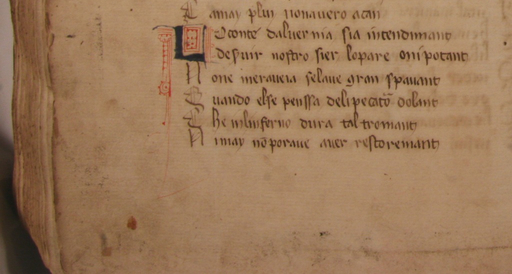 E amay plui nonavero acan
L Oconte daluernia sia intendimant
desiuir nostro sier lopare onipotant
N one meraveia selave gran spavant
Q uando else penssa deli pecati dolant
C he inlinferno dura tal tromant
N imay nō porave aver restoremant